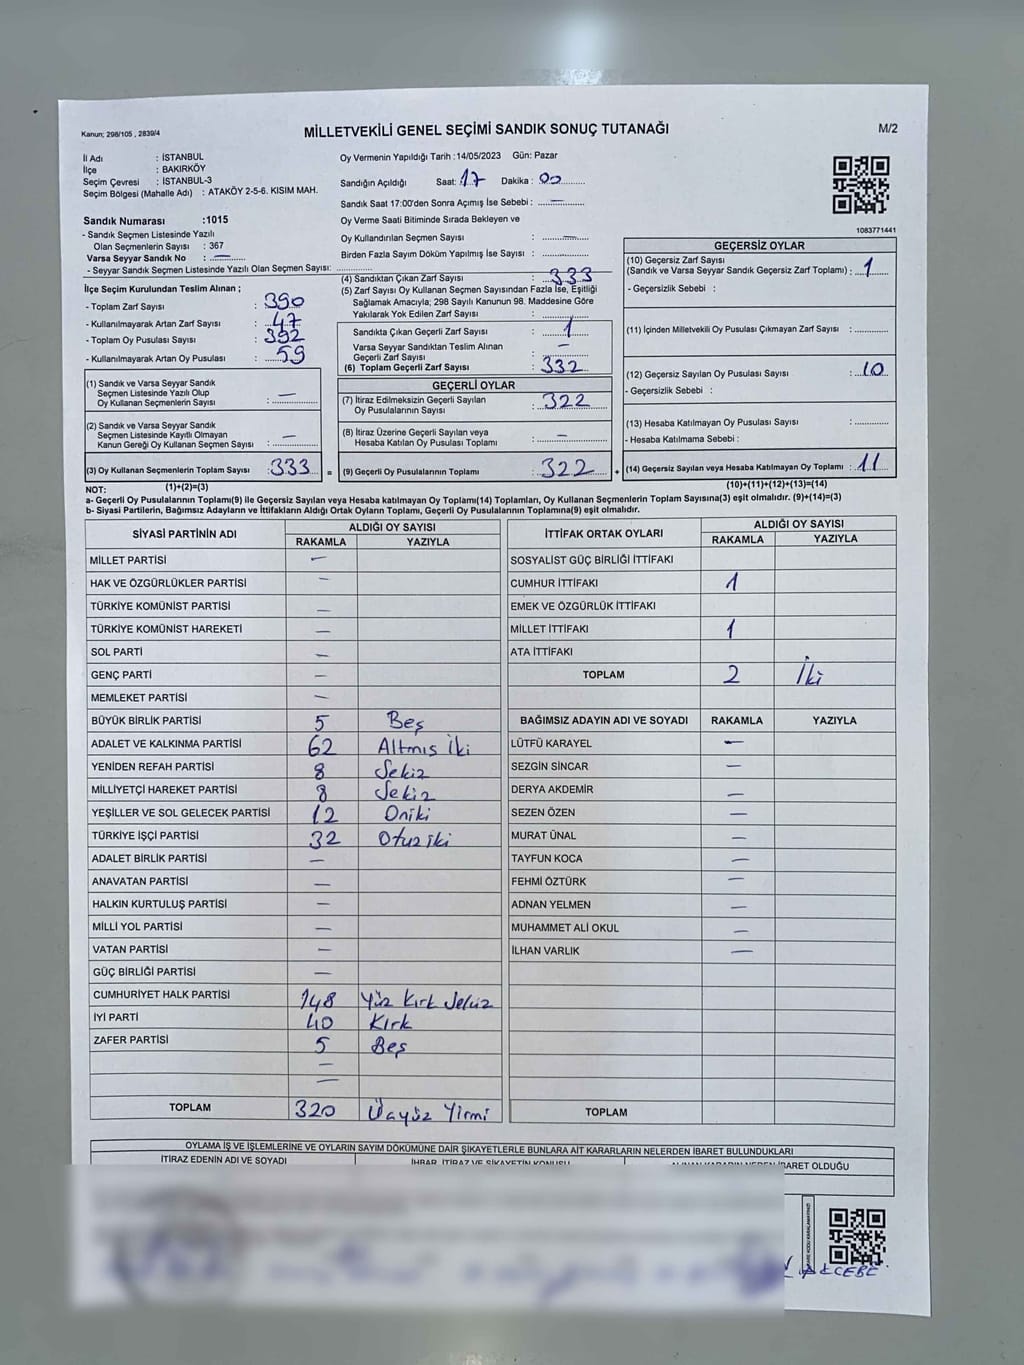 Kanun; 298/105 , 2839/4
MİLLETVEKİLİ GENEL SEÇİMİ SANDIK SONUÇ TUTANAĞI
M/2
İl Adı : İSTANBUL
İlçe : BAKIRKÖY
Seçim Çevresi : İSTANBUL-3
Seçim Bölgesi (Mahalle Adı) : ATAKÖY 2-5-6. KISIM MAH.
Sandık Numarası :1015
- Sandık Seçmen Listesinde Yazılı
Olan Seçmenlerin Sayısı : 367
Varsa Seyyar Sandık No : —
- Seyyar Sandık Seçmen Listesinde Yazılı Olan Seçmen Sayısı:
İlçe Seçim Kurulundan Teslim Alınan ;
- Toplam Zarf Sayısı : 390
- Kullanılmayarak Artan Zarf Sayısı : 47
- Toplam Oy Pusulası Sayısı : 392
- Kullanılmayarak Artan Oy Pusulası : 59
(1) Sandık ve Varsa Seyyar Sandık
Seçmen Listesinde Yazılı Olup
Oy Kullanan Seçmenlerin Sayısı : —
(2) Sandık ve Varsa Seyyar Sandık
Seçmen Listesinde Kayıtlı Olmayan
Kanun Gereği Oy Kullanan Seçmen Sayısı : —
(3) Oy Kullanan Seçmenlerin Toplam Sayısı :333
(1)+(2)=(3)
Oy Vermenin Yapıldığı Tarih :14/05/2023 Gün: Pazar
Sandığın Açıldığı Saat: 17 Dakika : 00
Sandık Saat 17:00'den Sonra Açımış İse Sebebi : —
Oy Verme Saati Bitiminde Sırada Bekleyen ve
Oy Kullandırılan Seçmen Sayısı : —
Birden Fazla Sayım Döküm Yapılmış İse Sayısı :
(4) Sandıktan Çıkan Zarf Sayısı : 333
(5) Zarf Sayısı Oy Kullanan Seçmen Sayısından Fazla İse, Eşitliği
Sağlamak Amacıyla; 298 Sayılı Kanunun 98. Maddesine Göre
Yakılarak Yok Edilen Zarf Sayısı :
Sandıkta Çıkan Geçerli Zarf Sayısı : 1
Varsa Seyyar Sandıktan Teslim Alınan
Geçerli Zarf Sayısı : —
(6) Toplam Geçerli Zarf Sayısı : 332
GEÇERLİ OYLAR
(7) İtiraz Edilmeksizin Geçerli Sayılan
Oy Pusulalarının Sayısı : 322
(8) İtiraz Üzerine Geçerli Sayılan veya
Hesaba Katılan Oy Pusulası Toplamı : —
= (9) Geçerli Oy Pusulalarının Toplamı : 322
1083771441
GEÇERSİZ OYLAR
(10) Geçersiz Zarf Sayısı
(Sandık ve Varsa Seyyar Sandık Geçersiz Zarf Toplamı) : 1
- Geçersizlik Sebebi :
(11) İçinden Milletvekili Oy Pusulası Çıkmayan Zarf Sayısı :
(12) Geçersiz Sayılan Oy Pusulası Sayısı : 10
- Geçersizlik Sebebi :
(13) Hesaba Katılmayan Oy Pusulası Sayısı :
- Hesaba Katılmama Sebebi :
+ (14) Geçersiz Sayılan veya Hesaba Katılmayan Oy Toplamı : 11
(10)+(11)+(12)+(13)=(14)
NOT:
a- Geçerli Oy Pusulalarının Toplamı(9) ile Geçersiz Sayılan veya Hesaba katılmayan Oy Toplamı(14) Toplamları, Oy Kullanan Seçmenlerin Toplam Sayısına(3) eşit olmalıdır. (9)+(14)=(3)
b- Siyasi Partilerin, Bağımsız Adayların ve İttifakların Aldığı Ortak Oyların Toplamı, Geçerli Oy Pusulalarının Toplamına(9) eşit olmalıdır.
SİYASİ PARTİNİN ADI ALDIĞI OY SAYISI
RAKAMLA YAZIYLA
MİLLET PARTİSİ —
HAK VE ÖZGÜRLÜKLER PARTİSİ —
TÜRKİYE KOMÜNİST PARTİSİ —
TÜRKİYE KOMÜNİST HAREKETİ —
SOL PARTİ —
GENÇ PARTİ —
MEMLEKET PARTİSİ —
BÜYÜK BİRLİK PARTİSİ 5 Beş
ADALET VE KALKINMA PARTİSİ 62 Altmış İki
YENİDEN REFAH PARTİSİ 8 Sekiz
MİLLİYETÇİ HAREKET PARTİSİ 8 Sekiz
YEŞİLLER VE SOL GELECEK PARTİSİ 12 Oniki
TÜRKİYE İŞÇİ PARTİSİ 32 Otuz iki
ADALET BİRLİK PARTİSİ —
ANAVATAN PARTİSİ —
HALKIN KURTULUŞ PARTİSİ —
MİLLİ YOL PARTİSİ —
VATAN PARTİSİ —
GÜÇ BİRLİĞİ PARTİSİ —
CUMHURİYET HALK PARTİSİ 148 Yüz Kırk Sekiz
İYİ PARTİ 40 Kırk
ZAFER PARTİSİ 5 Beş
—
—
TOPLAM 320 Üçyüz Yirmi
İTTİFAK ORTAK OYLARI ALDIĞI OY SAYISI
RAKAMLA YAZIYLA
SOSYALİST GÜÇ BİRLİĞİ İTTİFAKI
CUMHUR İTTİFAKI 1
EMEK VE ÖZGÜRLÜK İTTİFAKI
MİLLET İTTİFAKI 1
ATA İTTİFAKI
TOPLAM 2 İki
BAĞIMSIZ ADAYIN ADI VE SOYADI RAKAMLA YAZIYLA
LÜTFÜ KARAYEL —
SEZGİN SİNCAR —
DERYA AKDEMİR —
SEZEN ÖZEN —
MURAT ÜNAL —
TAYFUN KOCA —
FEHMİ ÖZTÜRK —
ADNAN YELMEN —
MUHAMMET ALİ OKUL —
İLHAN VARLIK —
TOPLAM
OYLAMA İŞ VE İŞLEMLERİNE VE OYLARIN SAYIM DÖKÜMÜNE DAİR ŞİKAYETLERLE BUNLARA AİT KARARLARIN NELERDEN İBARET BULUNDUKLARI
İTİRAZ EDENİN ADI VE SOYADI İHBAR, İTİRAZ VE ŞİKAYETİN KONUSU ALINAN KARARIN NEDEN İBARET OLDUĞU